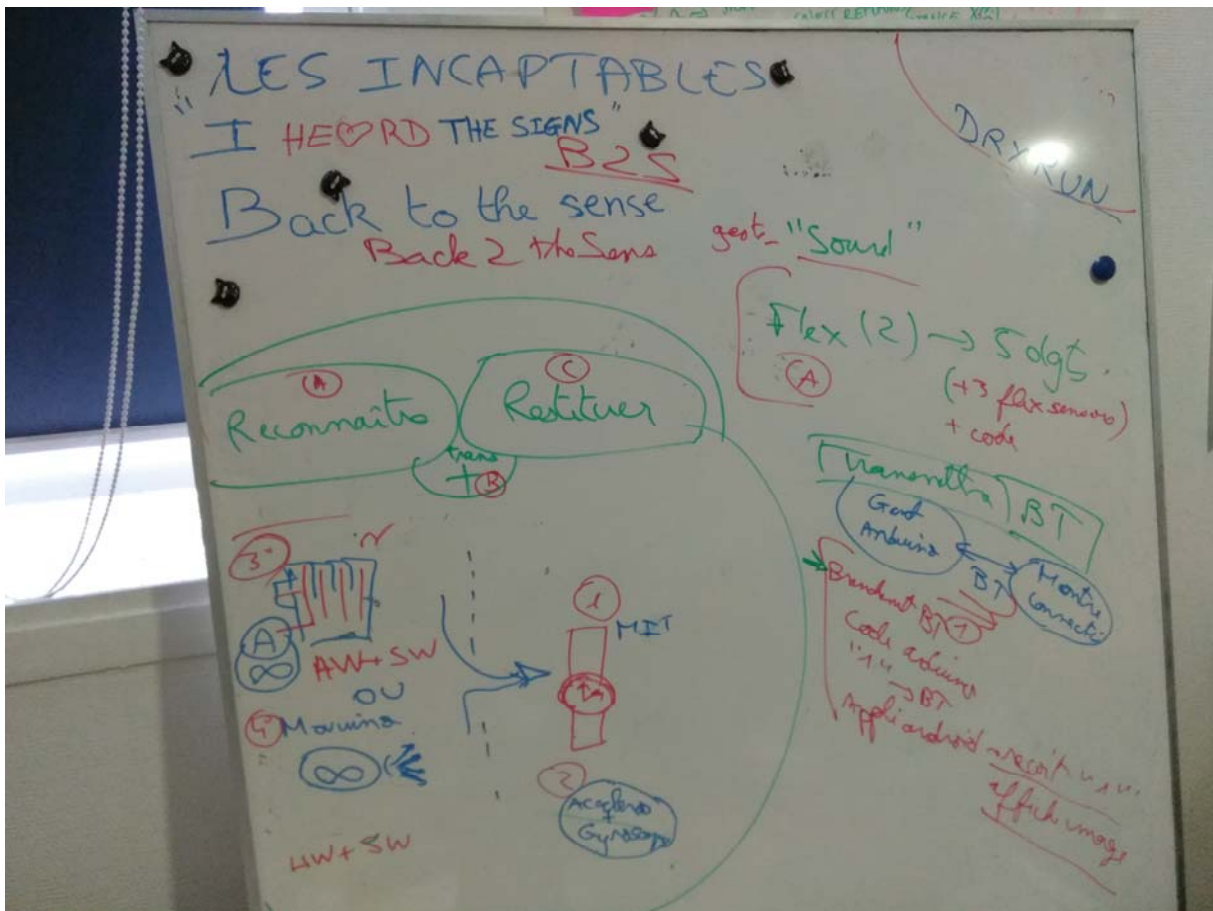 LES INCAPTABLES
"I HE♡RD THE SIGNS"
B2S
Back to the sense
Back 2 the Sens
DRY RUN
gest_ "Sound"
Flex (2) → 5 dgts
(+3 flex sensors)
+ code
A
A
Reconnaître
C
Restituer
trans
+ B
Transmettre BT
Gant
Arduino
BT
Montre
connecté
Branchement BT 1
Code arduino
"1" → BT
Appli android → reçoit "1"
affiche image
3
A
∞
HW + SW
OU
4
∞
HW + SW
1
MIT
2
Accélero
+
Gyroscope